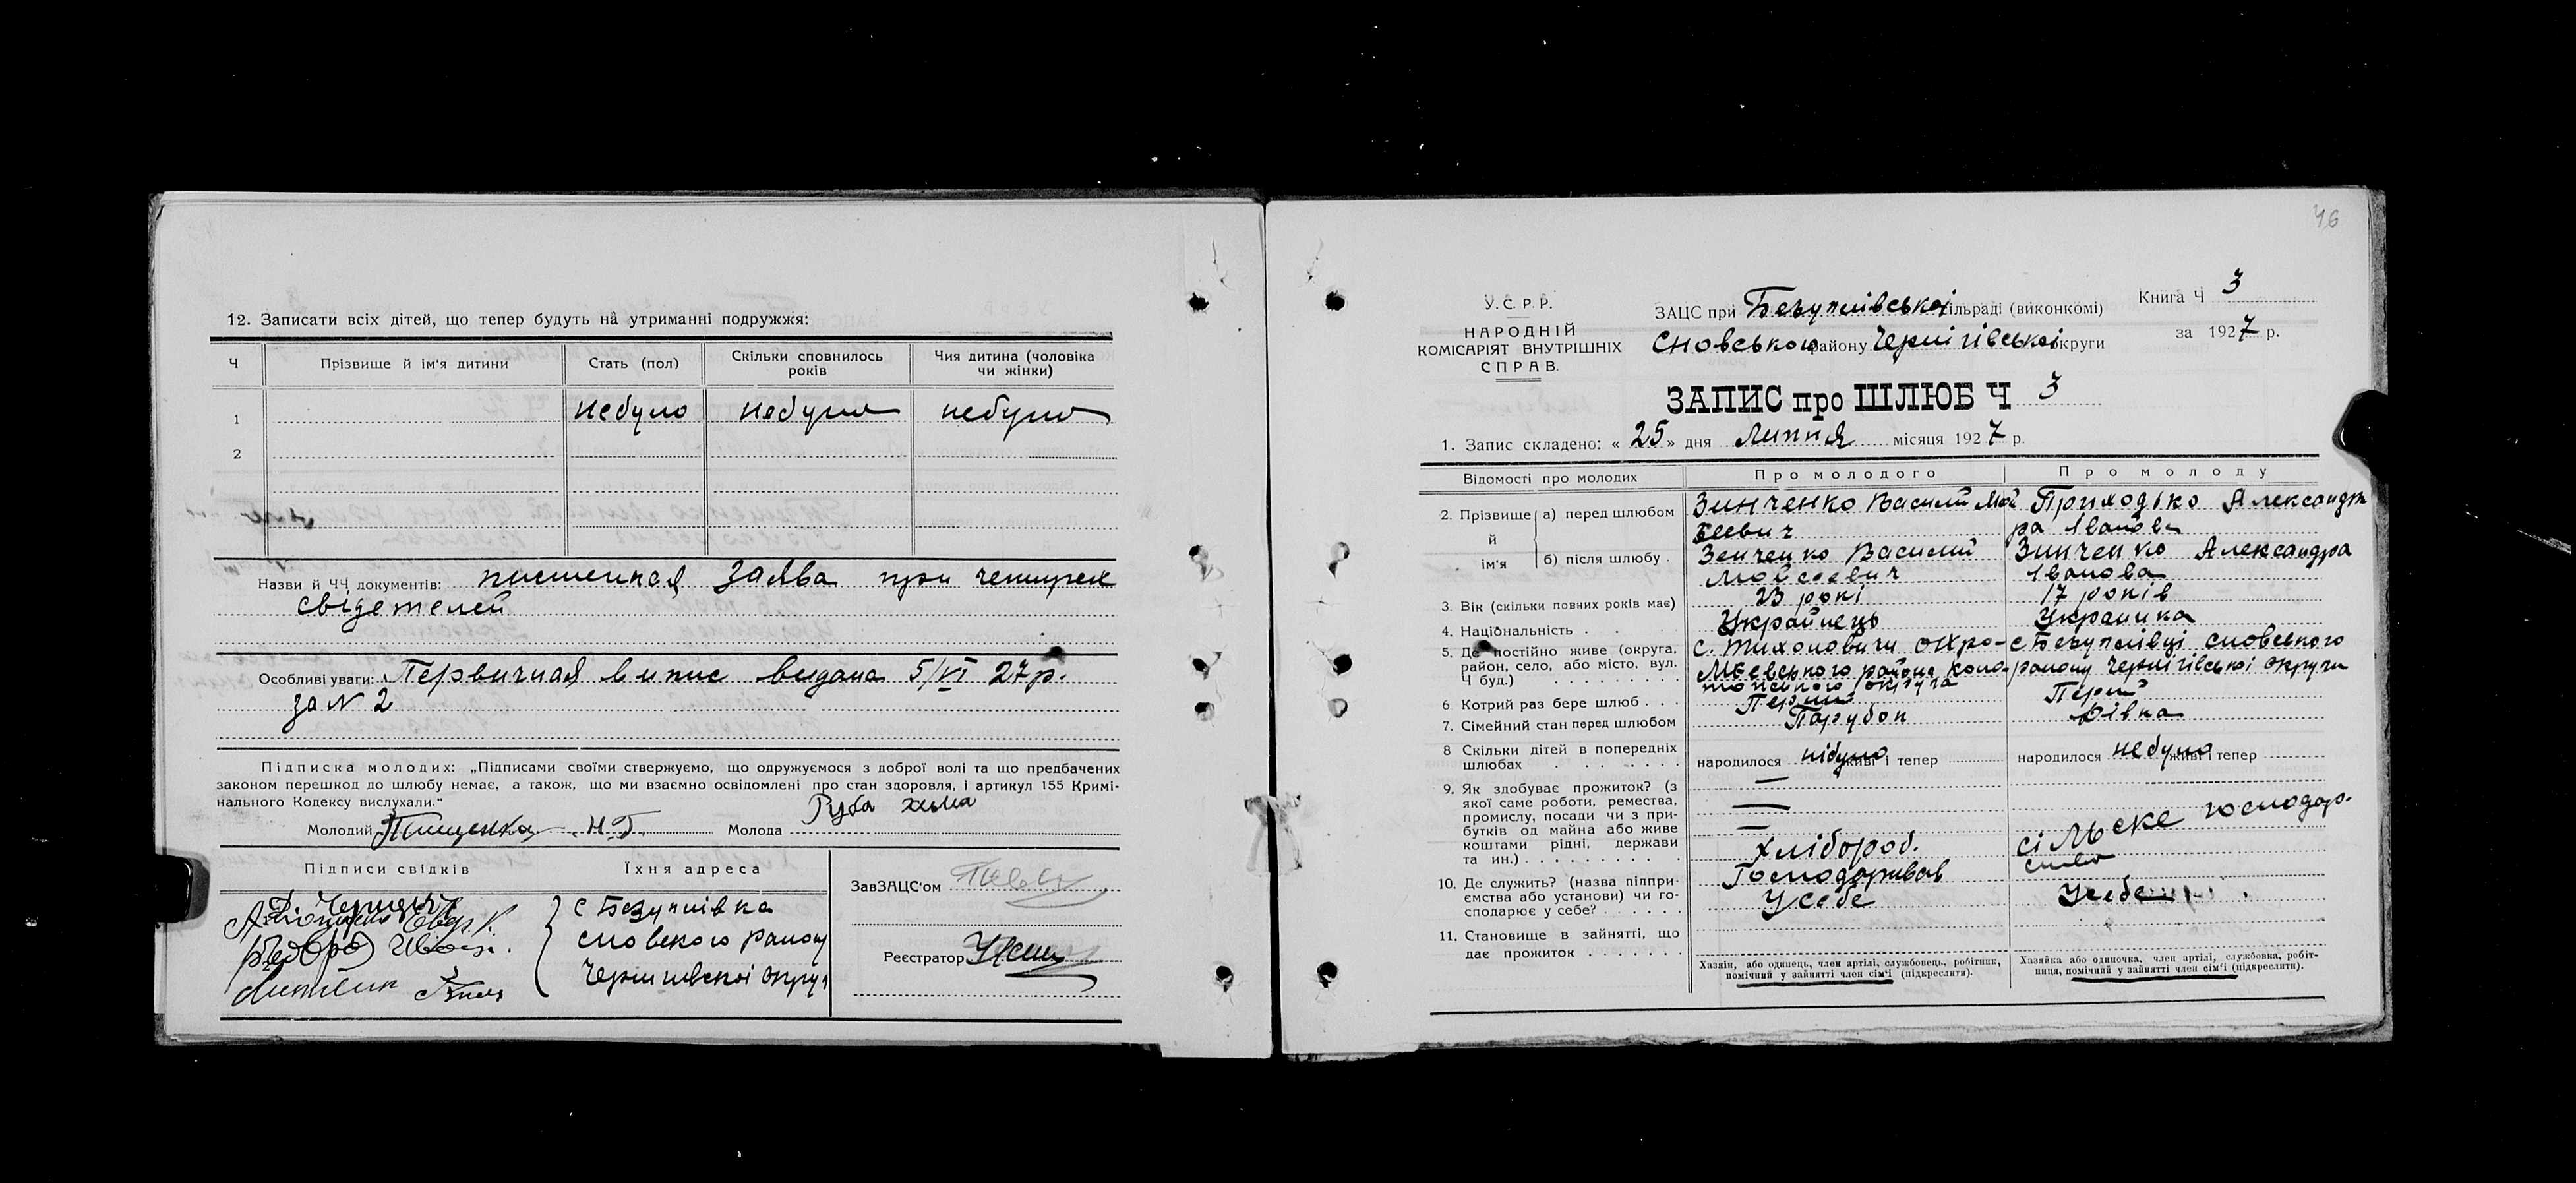 12. Записати всіх дітей, що тепер будуть на утриманні подружжя:
Ч
Прізвище й ім'я дитини
Стать (пол)
Скільки сповнилось років
Чия дитина (чоловіка чи жінки)
1 небуло небуло небуло
2
Назви й ЧЧ документів: писменная заява при четирех
свідетелей
Особливі уваги: Первичная випис видана 5/VI 27р.
за № 2
Підписка молодих: „Підписами своїми ствержуємо, що одружуємося з доброї волі та що предбачених
законом перешкод до шлюбу немає, а також, що ми взаємно освідомлені про стан здоровля, і артикул 155 Кримі-
нального Кодексу вислухали."
Молодий Пищенко Н.Г. Молода Руба Хима
Підписи свідків
Їхня адреса
с Безуглівка
сновского району
Чернигівскої округи
ЗавЗАЦС'ом
Реєстратор
46
У. С. Р. Р.
НАРОДНІЙ
КОМІСАРІЯТ ВНУТРІШНІХ
СПРАВ.
ЗАЦС при Безуглівської сільраді (виконкомі)
Сновського району Чернігівської округи
Книга Ч 3
за 1927 р.
ЗАПИС про ШЛЮБ Ч 3
1. Запис складено: « 25 » дня Липня місяця 1927 р.
Відомості про молодих
Про молодого
Про молоду
2. Прізвище й ім'я
а) перед шлюбом
Зинченко Василий Мой
сеевич
Приходько Александ
ра Іванов
б) після шлюбу .
Зенченко Василий
Мойсеевич
Зинченко Александра
Іванова
3. Вік (скільки повних років має)
23 рокі
17 років
4. Національність . .
Українець
Українка
5. Де постійно живе (округа,
район, село, або місто, вул.
Ч буд.)
с. Тихоновичи
с Безуглівці сновського
району Чернігівської округи
6. Котрий раз бере шлюб . . .
Перший
Перш
7. Сімейний стан перед шлюбом
Парубок
Дівка
8 Скільки дітей в попередніх
шлюбах
народилося нібуло живі і тепер
народилося небуло живі і тепер
9. Як здобуває прожиток? (з
якої саме роботи, ремества,
промислу, посади чи з при-
бутків од майна або живе
коштами рідні, держави
та ин.)
Хлібороб.
сільске господар-
10. Де служить? (назва підпри-
ємства або установи) чи го-
сподарює у себе?
Господарював
У себе
У себе
11. Становище в зайнятті, що
дає прожиток
Хазяїн, або одинець, член артілі, службовець, робітник,
помічний у зайнятті член сім'ї (підкреслити).
Хазяйка або одиночка, член артілі, службовка, робіт-
ниця, помічний у зайнятті член сім'ї (підкреслити).